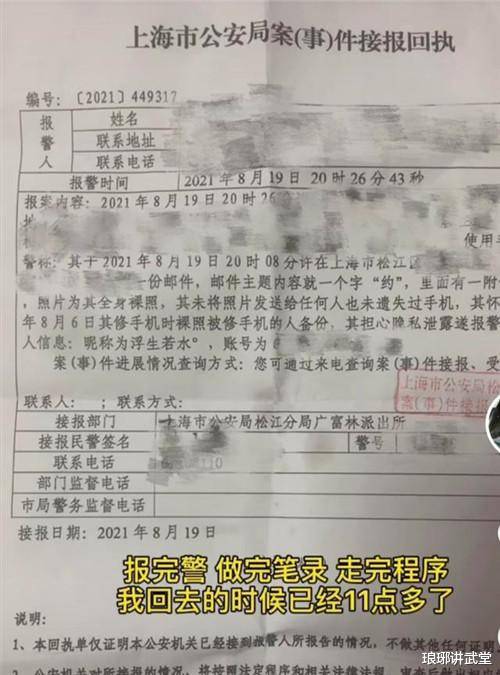 上海市公安局案(事)件接报回执
编号:〔2021〕449317
报警人
姓名
联系地址
联系电话
报警时间 2021年8月19日20时26分43秒
报案内容: 2021年8月19日20时26
使用
警称:其于2021年8月19日20时08分许在上海市松江区
一份邮件,邮件主题内容就一个字“约”,里面有一附
,照片为其全身裸照,其未将照片发送给任何人也未遗失过手机,其怀
年8月6日其修手机时裸照被修手机的人备份,其担心隐私泄露送报警
人信息:昵称为浮生若水,账号为
案(事)件进展情况查询方式:您可通过来电查询案(事)件接报、受
上海市公安局松
案(事)件接报
联系人: ; 联系方式:
接报部门 上海市公安局松江分局广富林派出所
接报民警签名 警号
联系电话 110
部门监督电话
市局警务监督电话
接报日期: 2021年8月19日
报完警 做完笔录 走完程序
我回去的时候已经11点多了
说明:
1、本回执单仅证明本公安机关已经接到报警人所报告的情况,不做其他任何证明
2、公安机关对所接报的情况,将按照法定程序和相关法律法规,
琅琊讲武堂